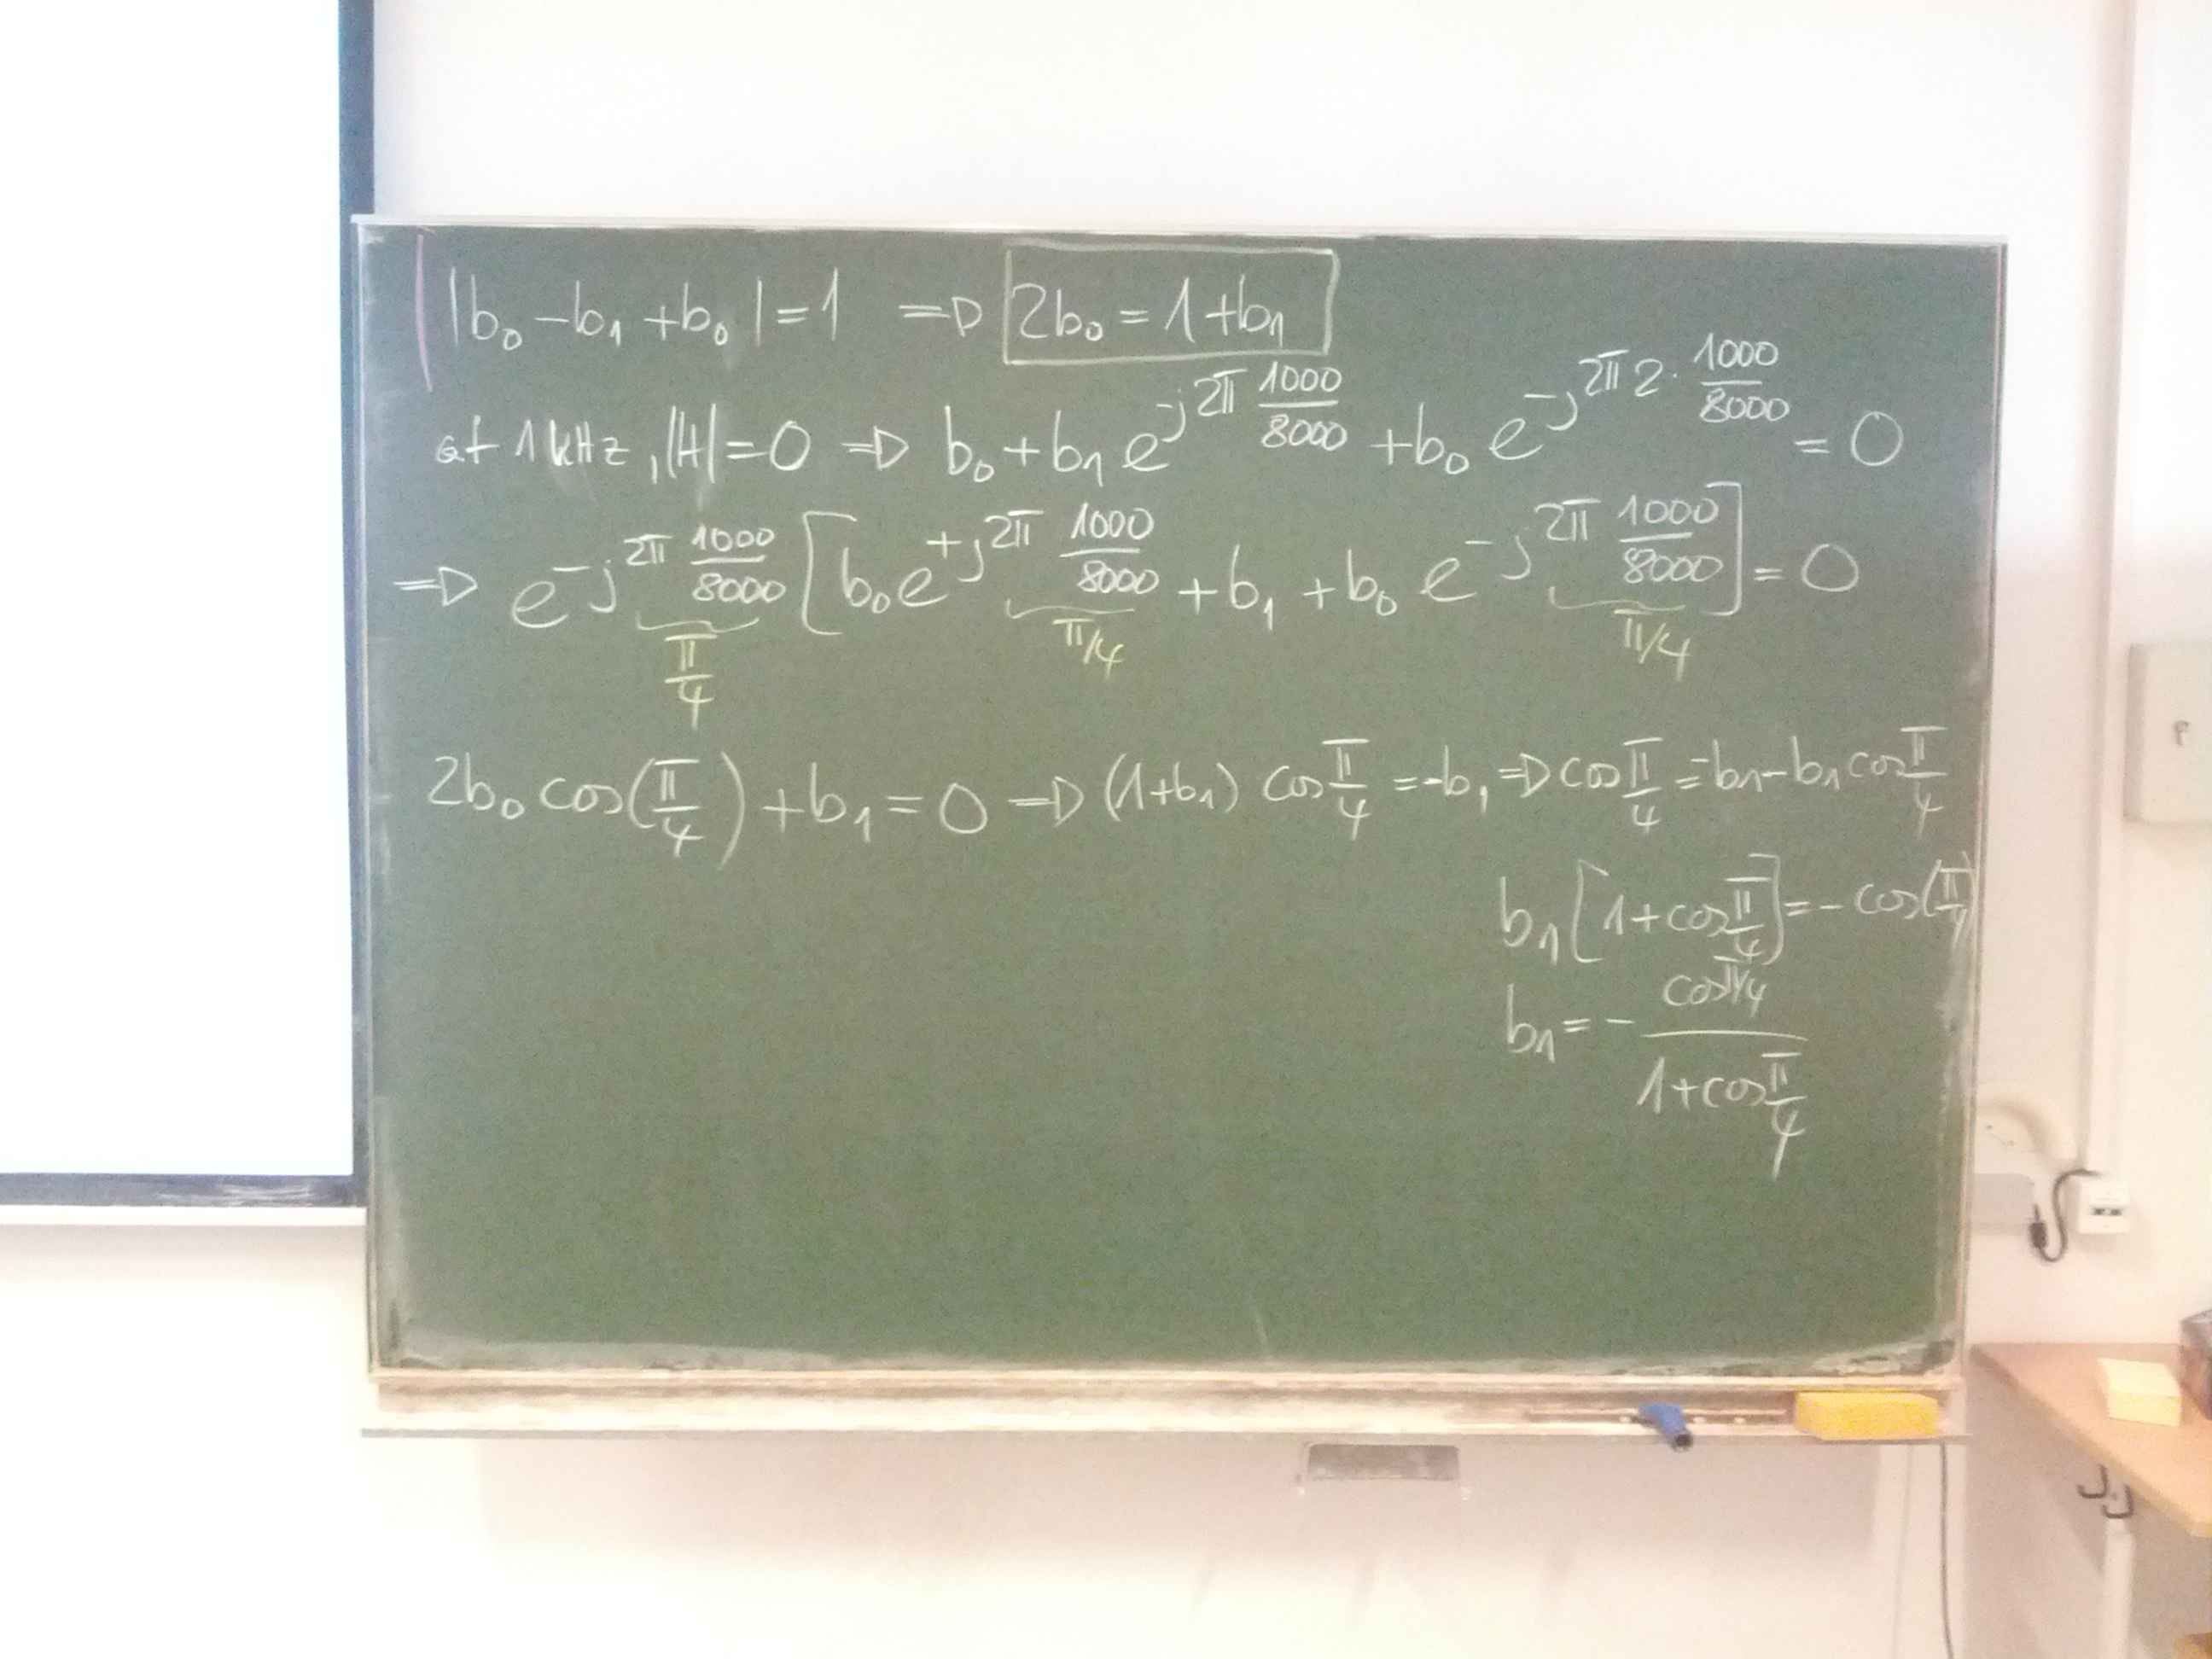 |b₀ - b₁ + b₀| = 1 ⇒ 2b₀ = 1 + b₁
at 1 kHz, |H| = 0 ⇒ b₀ + b₁ e^(-j2π 1000/8000) + b₀ e^(-j2π2·1000/8000) = 0
⇒ e^(-j2π 1000/8000) [b₀ e^(+j2π 1000/8000) + b₁ + b₀ e^(-j2π 1000/8000)] = 0
π/4 π/4 π/4
2b₀ cos(π/4) + b₁ = 0 ⇒ (1+b₁) cos π/4 = -b₁ ⇒ cos π/4 = -b₁ - b₁ cos π/4
b₁ [1 + cos π/4] = - cos(π/4)
b₁ = - cos π/4 / (1 + cos π/4)